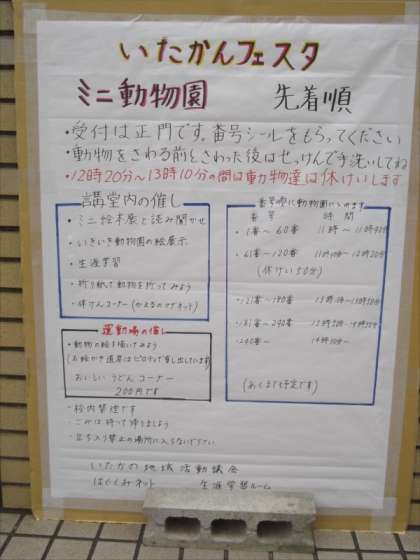 いたかんフェスタ
ミニ動物園 先着順
・受付は正門です。番号シールをもらってください
・動物をさわる前とさわった後はせっけんで手洗いしてね
・12時20分～13時10分の間は動物達は休けいします
講堂内の催し
・ミニ絵本展と読み聞かせ
・いきいき動物園の絵展示
・生涯学習
・折り紙で動物を折ってみよう
・休けんコーナー(かえるのマグネット)
運動場の催し
・動物の絵を描いてみよう
(お絵かき道具はピロティで貸し出しています)
おいしいうどんコーナー
200円です
番号順に動物園に入れます
番号 時間
・1番～60番
・61番～120番
(休けい50分)
・121番～180番
・181番～240番
・240番～
(あくまで予定です)
・校内禁煙です
・ごみは持って帰りましょう
・立ち入り禁止の場所に入らないで下さい
いたかの地域活動議会
はぐくみネット 生涯学習ルーム